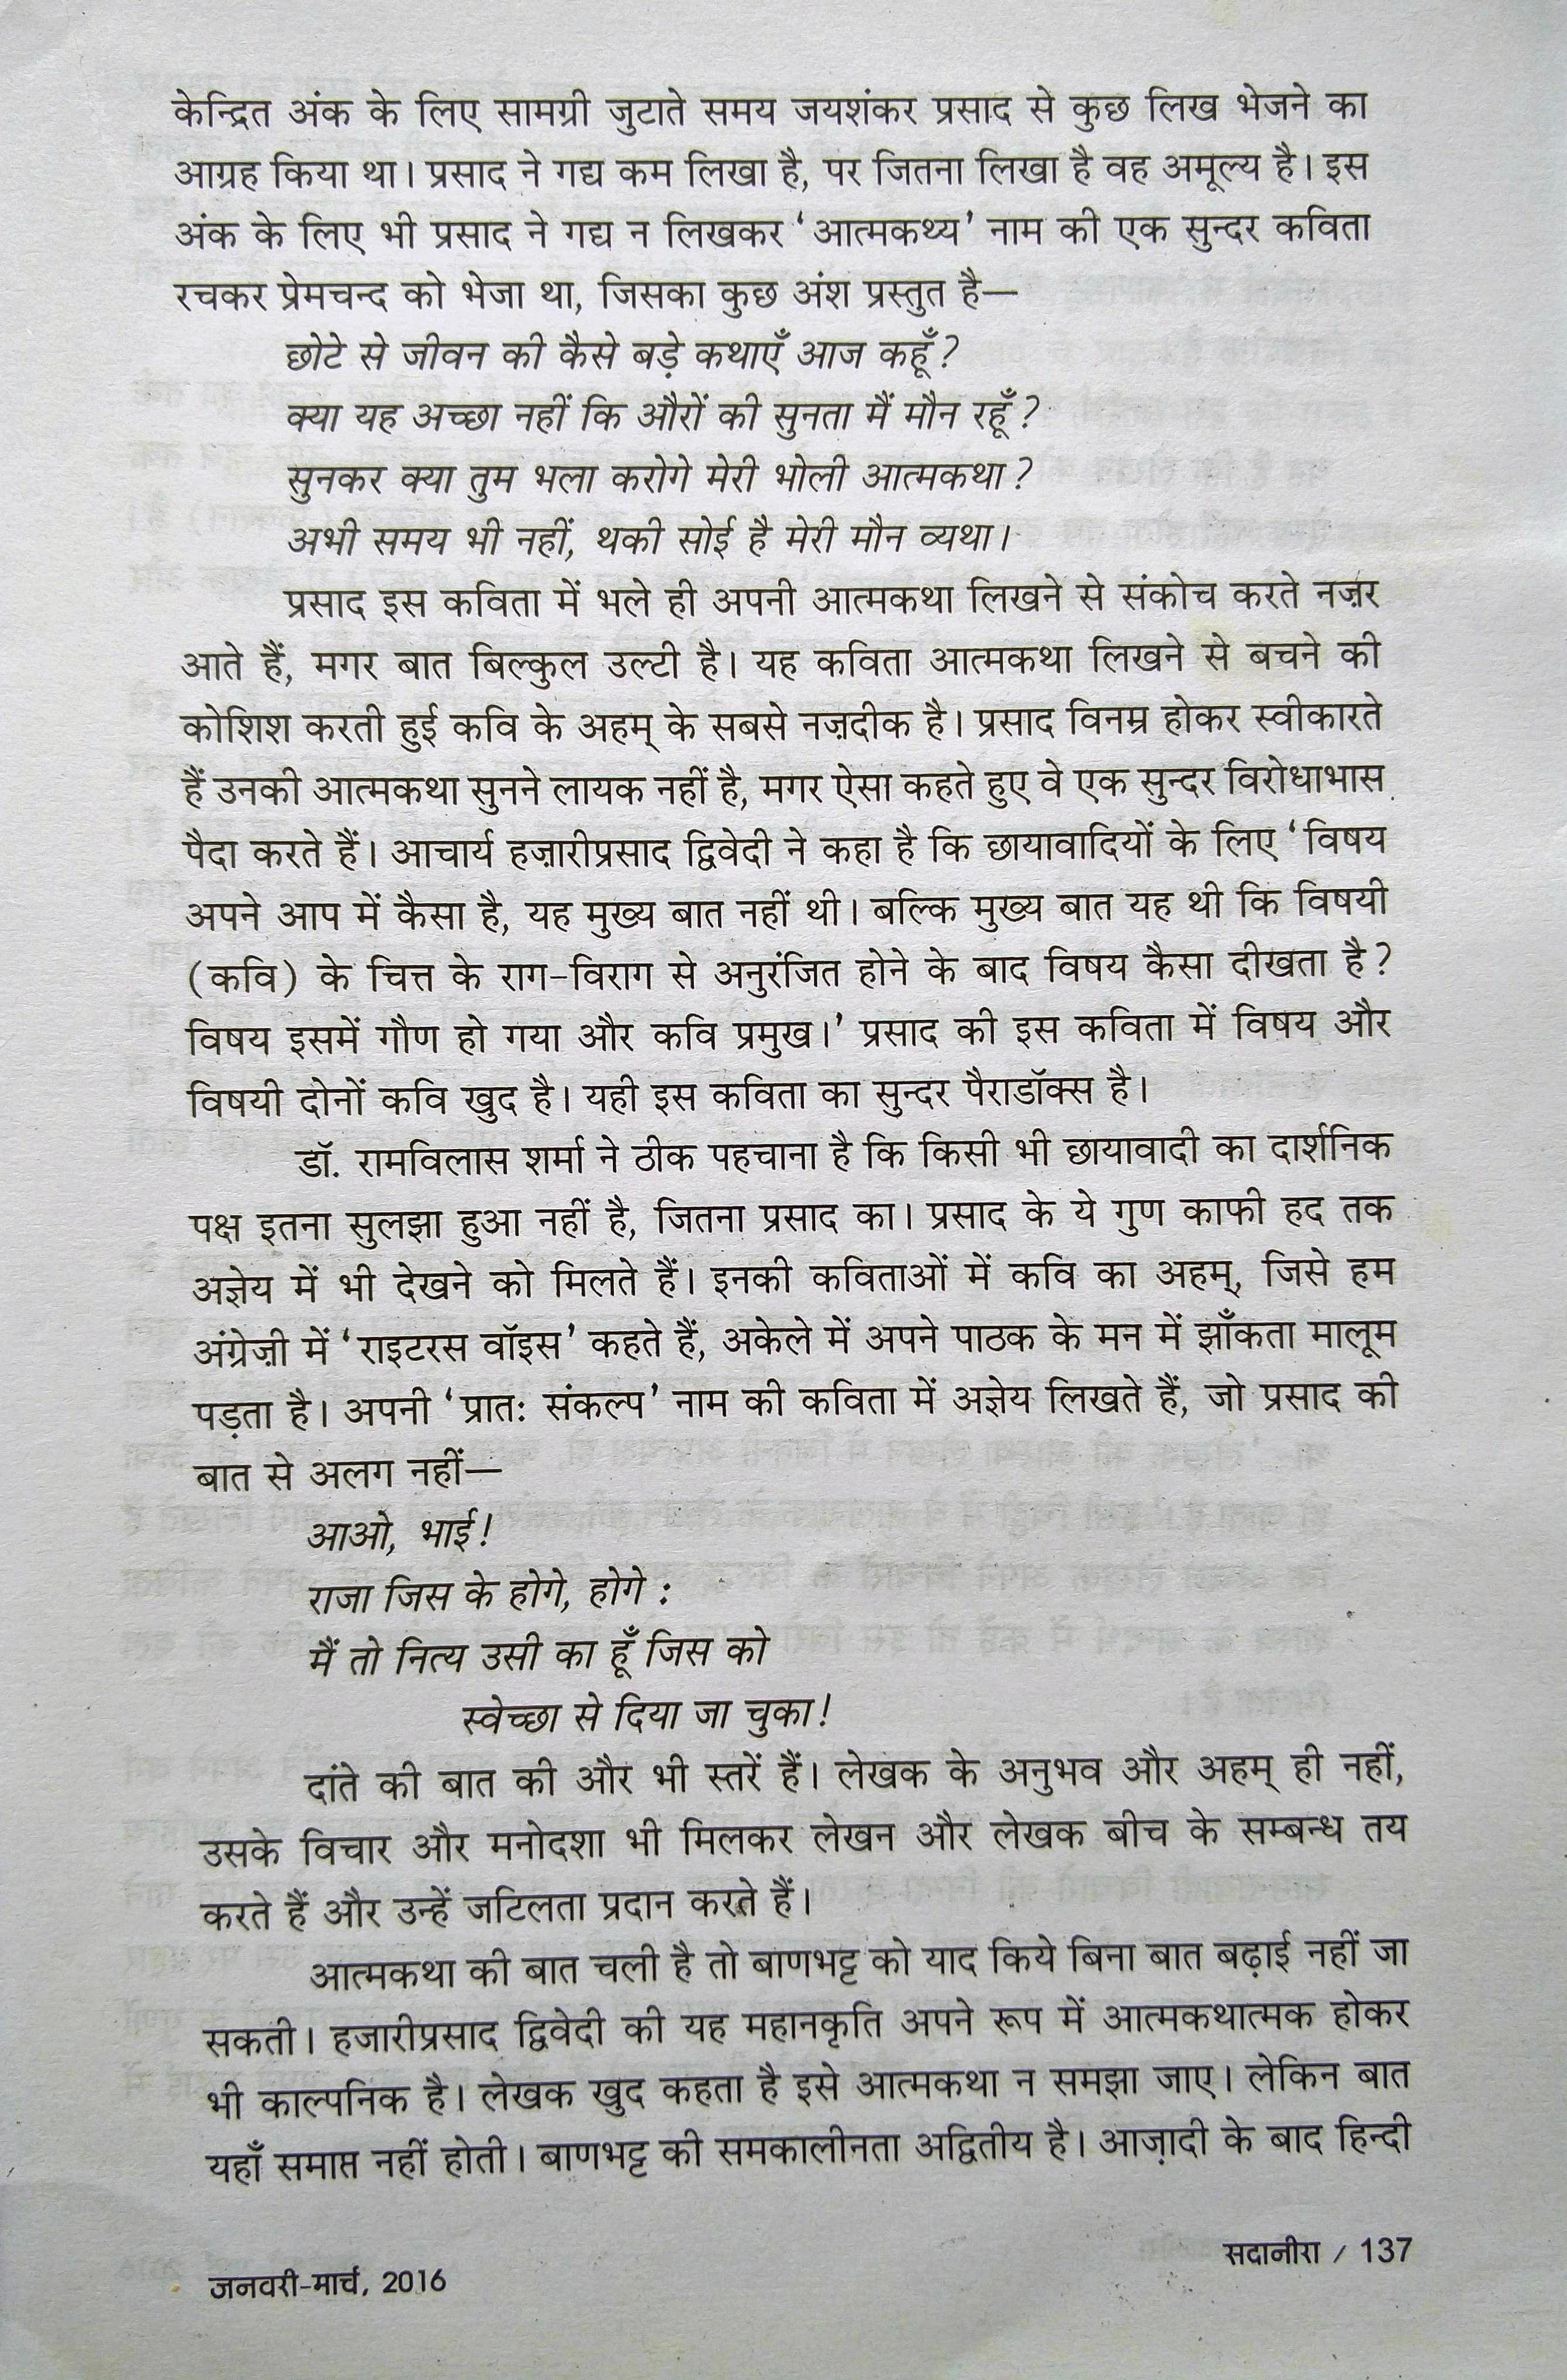 केन्द्रित अंक के लिए सामग्री जुटाते समय जयशंकर प्रसाद से कुछ लिख भेजने का
आग्रह किया था। प्रसाद ने गद्य कम लिखा है, पर जितना लिखा है वह अमूल्य है। इस
अंक के लिए भी प्रसाद ने गद्य न लिखकर ‘आत्मकथ्य’ नाम की एक सुन्दर कविता
रचकर प्रेमचन्द को भेजा था, जिसका कुछ अंश प्रस्तुत है—
छोटे से जीवन की कैसे बड़े कथाएँ आज कहूँ?
क्या यह अच्छा नहीं कि औरों की सुनता मैं मौन रहूँ?
सुनकर क्या तुम भला करोगे मेरी भोली आत्मकथा?
अभी समय भी नहीं, थकी सोई है मेरी मौन व्यथा।
प्रसाद इस कविता में भले ही अपनी आत्मकथा लिखने से संकोच करते नज़र
आते हैं, मगर बात बिल्कुल उल्टी है। यह कविता आत्मकथा लिखने से बचने की
कोशिश करती हुई कवि के अहम् के सबसे नज़दीक है। प्रसाद विनम्र होकर स्वीकारते
हैं उनकी आत्मकथा सुनने लायक नहीं है, मगर ऐसा कहते हुए वे एक सुन्दर विरोधाभास
पैदा करते हैं। आचार्य हज़ारीप्रसाद द्विवेदी ने कहा है कि छायावादियों के लिए ‘विषय
अपने आप में कैसा है, यह मुख्य बात नहीं थी। बल्कि मुख्य बात यह थी कि विषयी
(कवि) के चित्त के राग-विराग से अनुरंजित होने के बाद विषय कैसा दीखता है?
विषय इसमें गौण हो गया और कवि प्रमुख।’ प्रसाद की इस कविता में विषय और
विषयी दोनों कवि खुद है। यही इस कविता का सुन्दर पैराडॉक्स है।
डॉ. रामविलास शर्मा ने ठीक पहचाना है कि किसी भी छायावादी का दार्शनिक
पक्ष इतना सुलझा हुआ नहीं है, जितना प्रसाद का। प्रसाद के ये गुण काफी हद तक
अज्ञेय में भी देखने को मिलते हैं। इनकी कविताओं में कवि का अहम्, जिसे हम
अंग्रेज़ी में ‘राइटरस वॉइस’ कहते हैं, अकेले में अपने पाठक के मन में झाँकता मालूम
पड़ता है। अपनी ‘प्रातः संकल्प’ नाम की कविता में अज्ञेय लिखते हैं, जो प्रसाद की
बात से अलग नहीं—
आओ, भाई!
राजा जिस के होगे, होगे :
मैं तो नित्य उसी का हूँ जिस को
स्वेच्छा से दिया जा चुका!
दांते की बात की और भी स्तरें हैं। लेखक के अनुभव और अहम् ही नहीं,
उसके विचार और मनोदशा भी मिलकर लेखन और लेखक बीच के सम्बन्ध तय
करते हैं और उन्हें जटिलता प्रदान करते हैं।
आत्मकथा की बात चली है तो बाणभट्ट को याद किये बिना बात बढ़ाई नहीं जा
सकती। हजारीप्रसाद द्विवेदी की यह महानकृति अपने रूप में आत्मकथात्मक होकर
भी काल्पनिक है। लेखक खुद कहता है इसे आत्मकथा न समझा जाए। लेकिन बात
यहाँ समाप्त नहीं होती। बाणभट्ट की समकालीनता अद्वितीय है। आज़ादी के बाद हिन्दी
सदानीरा / 137
जनवरी-मार्च, 2016